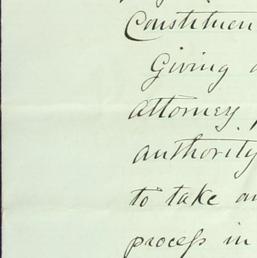 Constituen
Giving a
attorney, p
authority
to take an
process in